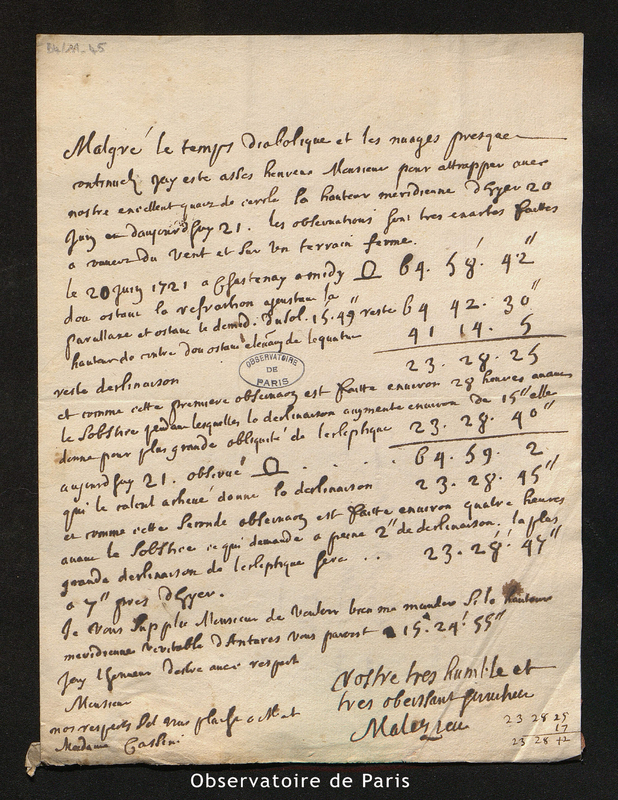 B4/2A-45
Malgré le temps diabolique et les nuages presque
continuels Jay este asses heureux Monsieur pour attrapper avec
nostre excellent quart de cercle la hauteur méridienne d'hyer 20
Juin et daujourdhuy 21. les observations sont tres exactes faittes
a couvert du vent et sur un terrain ferme.
le 20 Juin 1721 a Chastenay a midy Ω 64. 58. 42"
dou ostant la refraction ajoustant la
parallaxe et ostant le demid. du sol. 15.49" reste 64 42. 30"
hauteur du centre dou ostant l'elevaon de lequateur 41 14. 5
reste declinaison 23. 28. 25
OBSERVATOIRE DE PARIS
et comme cette premiere observaon est faitte environ 28 heures avant
le solstice pendant lesquelles la declinaison augmente environ de 15" elle
donne pour plus grande obliquité de lecleptique 23. 28. 40"
aujourdhuy 21. observé Ω . . . . 64. 59. 2
qui le calcul achevé donne la declinaison 23. 28. 45"
et comme cette seconde observaon est faitte environ quatre heures
avant le solstice ce qui demande a peine 2" de declinaison. la plus
grande declinaison de lecleptique sera . . . 23. 28. 47"
a 7" pres d'hyer.
Je vous supplie Monsieur de vouloir bien me mander si la hauteur
meridienne veritable d'Antares vous paroist a 15. 24. 55"
Jay lhonneur destre avec respect
Monsieur
Vostre tres humble et
tres obeissant serviteur
Malezieu
nos respects sil vous plaist a M et
Madame Cassini
23 28 25
17
23 28 42
Observatoire de Paris